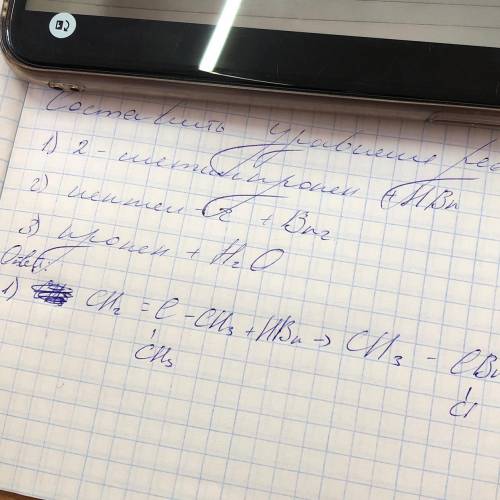 Составить уравнение реа
1) 2-метилпропен + HBr
2) пентен-2 + Br2
3) пропен + H2O
Ответ:
1) CH2 = C - CH3 + HBr → CH3 - CBr
CH3 C